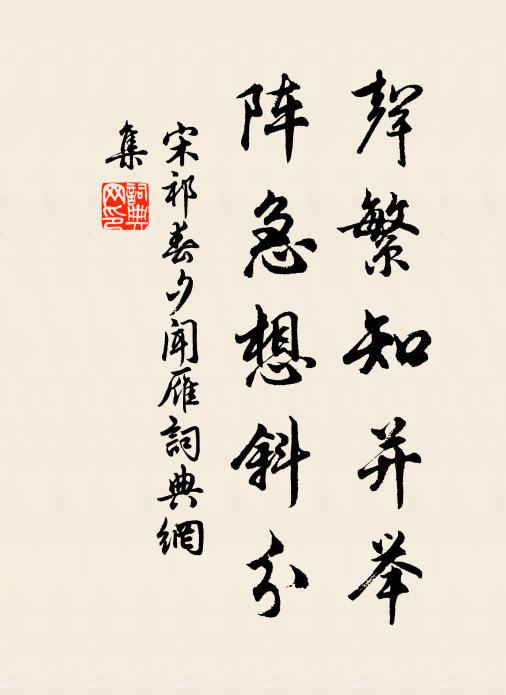 聲繁知并举
阵急想斜分
宋祁春夕闻雁詞典網
集
詞典
网印